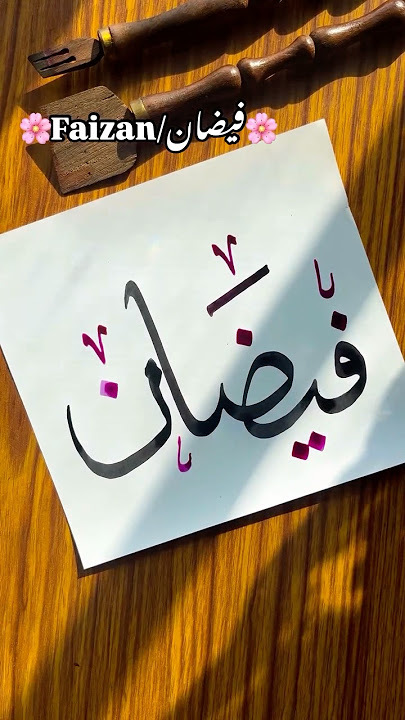 🌸Faizan/فیضان🌸
فيضان